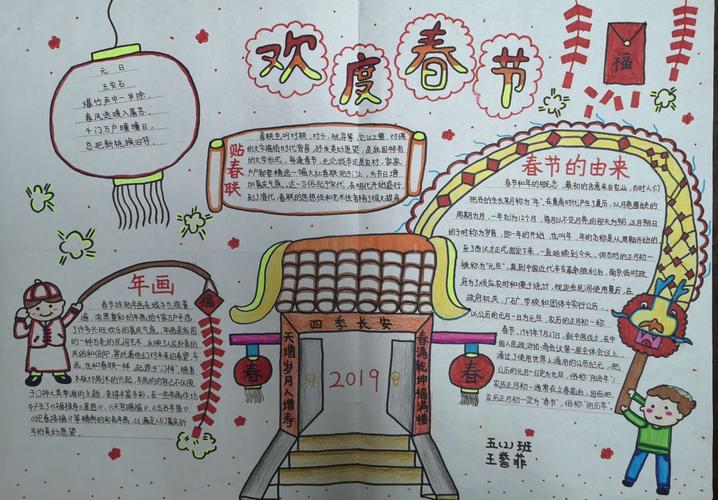 欢度春节
福
元日
王安石
爆竹声中一岁除,
春风送暖入屠苏
千门万户曈曈日,
总把新桃换旧符。
贴春联
春联也叫对联、对子、桃符等,它以工整、对偶
的文字描绘时代背景,抒发美好愿望,是我国特有
的文学形式。每逢春节,无论城市还是农村,家家
户户都要精选一幅大红春联贴于门上,为节日增
加喜庆气氛。这一习俗起于宋代,在明代开始盛行,
到了清代,春联的思想性和艺术性都有了很大提高
春节的由来
春节和年的概念,最初的含意来自农业,古时人们
把谷的生长周期称为“年”,在夏商时代产生了夏历,以月亮圆缺的
周期为月,一年划为12个月,每月以不见月亮的那天为朔,正月朔日
的子时称为岁首,即一年的开始,也叫年,年的名称是从周朝开始的
至了西汉才正式固定下来,一直延续到今天,但古时的正月初一
被称为“元旦”,直到中国近代辛亥革命胜利后,南京临时政
府为了顺应农时和便于统计,规定在民间使用夏历,在
政府机关、厂矿、学校和团体中实行公历,
以公历的一月一日为元旦,农历的正月初一称
春节。1949年9月27日,新中国成立,在中
国人民政治协商会议第一届全体会议上,
通过了使用世界上通用的公历纪元,把
公历的元月一日定为元旦,俗称“阳历年”;
农历正月初一通常在立春前后,因而把
农历正月初一定为“春节”,俗称“阴历年”。
年画
福
春节挂贴年画在城乡也很普
遍,浓黑重彩的年画给千家万户平添
了许多兴旺欢乐的喜庆气氛,年画是我国
的一种古老的民间艺术,反映了人民朴素的
风俗和信仰,寄托着他们对未来的希望。年
画,也和春联一样,起源于“门神”。随着
木板印刷术的兴起,年画的内容已不仅限
于门神之类单调的主题,变得丰富多彩,在一些年画作坊
中产生了《福禄寿三星图》、《天官赐福》、《五谷丰登》、
《迎春接福》等精典的彩色年画,以满足人们喜庆祈
年的美好愿望。
四季长安
天增岁月人增寿
春满乾坤福满楼
春
春
2019
五(2)班